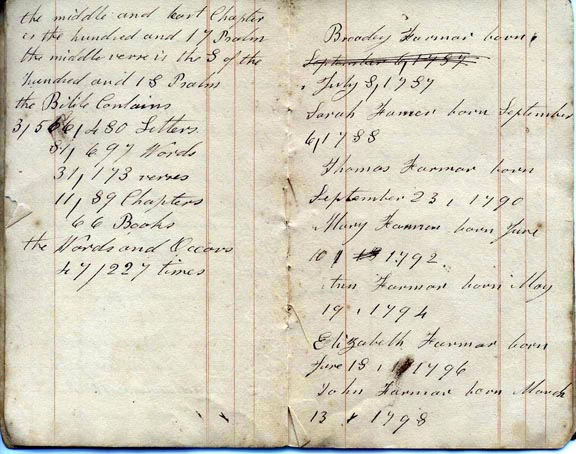 the middle and last Chapter
is the hundred and 17 Psalm
the middle verse is the 8 of the
hundred and 18 Psalm
the Bible Contains
3,566,480 Letters
697 Words
31,173 verses
11,89 Chapters
66 Books
the Words and Occors
47,227 times
Broadey Farmar born
September 6, 1787
July 8, 1787
Sarah Famer born September
6, 1788
Thomas Farmar born
September 23, 1790
Mary Farmar born June
10 1792.
Ann Farmar born May
19, 1794
Elizabeth Farmar born
June 18, 1796
John Farmar born March
13, 1798